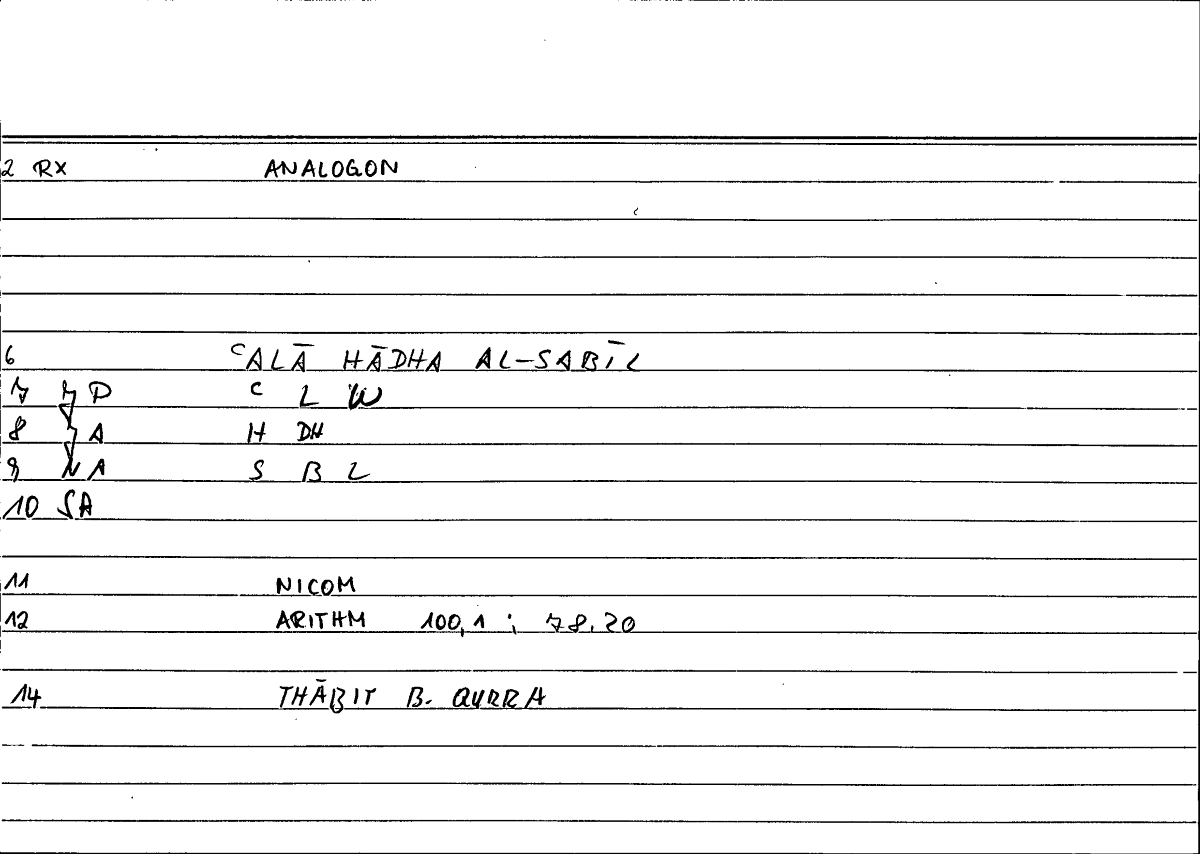 2 RX ANALOGON
6 ᶜALĀ HĀDHA AL-SABĪL
7 D C L W
8 A H DH
9 NA S B L
10 SA
11 NICOM
12 ARITHM 100,1 ; 78.20
14 THĀBIT B. QURRA